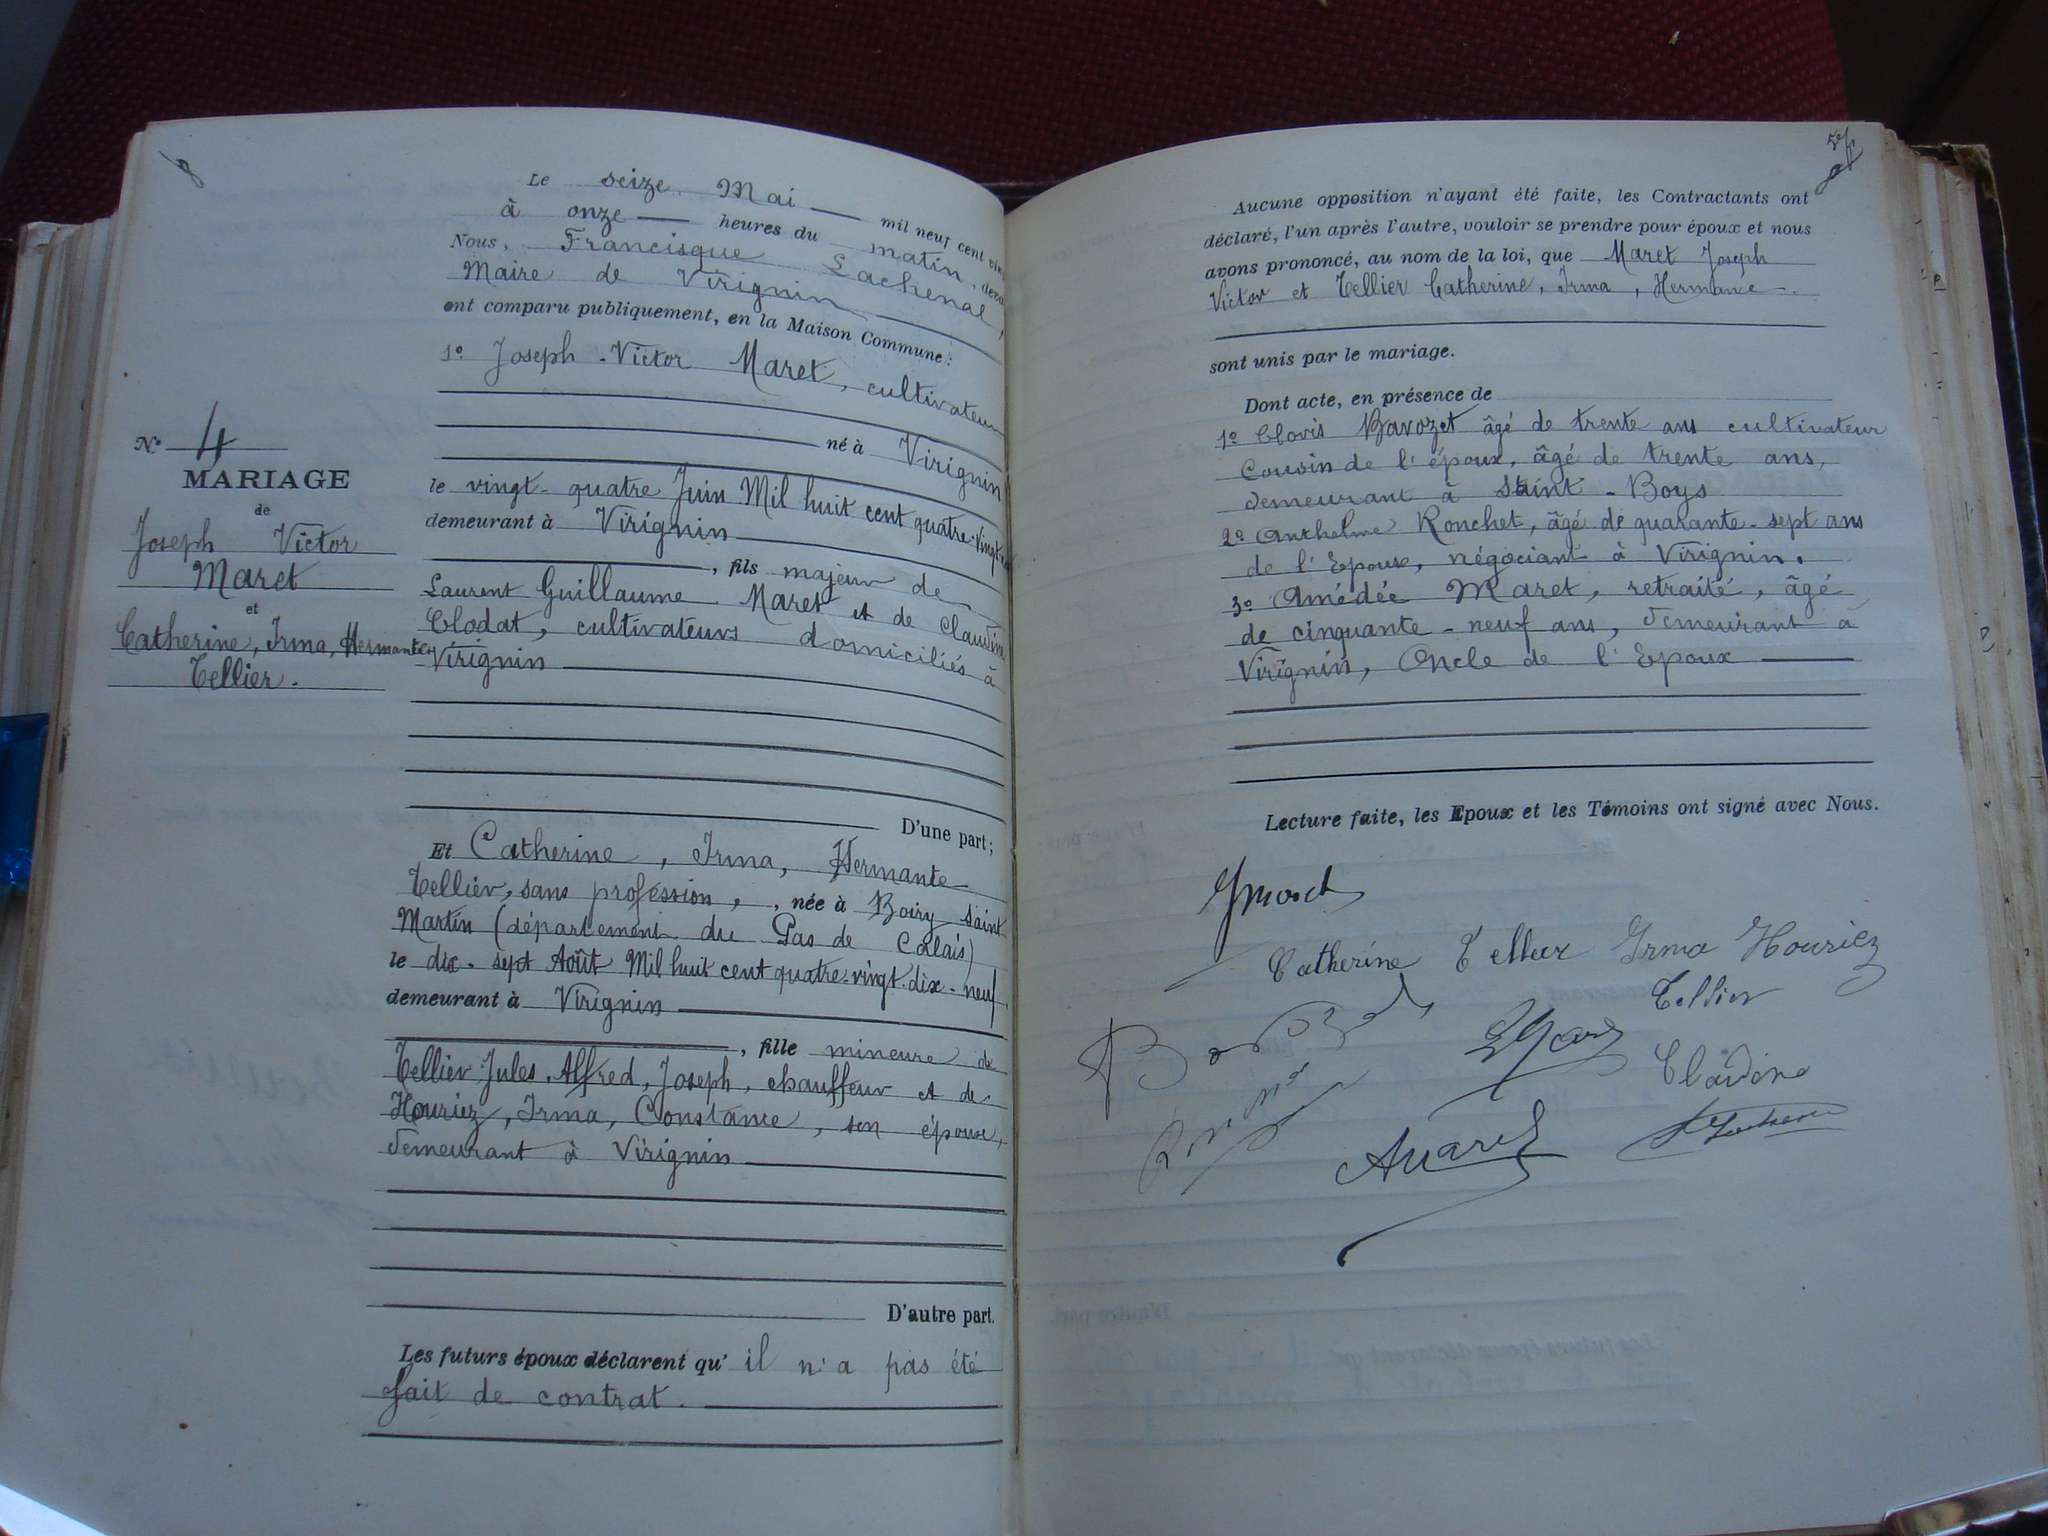 8
Le seize Mai mil neuf cent
à onze heures du matin,
Nous, Francisque Lachenal,
Maire de Virignin
ont comparu publiquement, en la Maison Commune:
1º Joseph-Victor Maret, cultivateur
né à Virignin
le vingt-quatre Juin Mil huit cent quatre-vingt
demeurant à Virignin
, fils majeur de
Laurent Guillaume Maret et de Claudine
Clodat, cultivateurs domiciliés à
Virignin
D'une part;
Et Catherine, Irma, Hermante
Tellier, sans profession, née à Boiry Saint
Martin (département du Pas de Calais)
le dix-sept Août Mil huit cent quatre-vingt-dix-neuf
demeurant à Virignin
, fille mineure de
Tellier Jules, Alfred, Joseph, chauffeur et de
Houriez, Irma, Constance, son épouse,
demeurant à Virignin
D'autre part.
Les futurs époux déclarent qu' il n'a pas été
fait de contrat.
Nº 4
MARIAGE
de
Joseph Victor
Maret
et
Catherine, Irma, Hermante
Tellier.
Aucune opposition n'ayant été faite, les Contractants ont
déclaré, l'un après l'autre, vouloir se prendre pour époux et nous
avons prononcé, au nom de la loi, que Maret Joseph
Victor et Tellier Catherine, Irma, Hermance
sont unis par le mariage.
Dont acte, en présence de
1º Clovis Bavozet âgé de trente ans cultivateur
Cousin de l'époux, âgé de trente ans,
demeurant à Saint-Boys
2º Anthelme Ronchet, âgé de quarante-sept ans
de l'Epoux, négociant à Virignin.
3º Amédée Maret, retraité, âgé
de cinquante-neuf ans, demeurant à
Virignin, Oncle de l'Epoux
Lecture faite, les Epoux et les Témoins ont signé avec Nous.
Catherine Tellier Irma Houriez
Tellier
Claudine